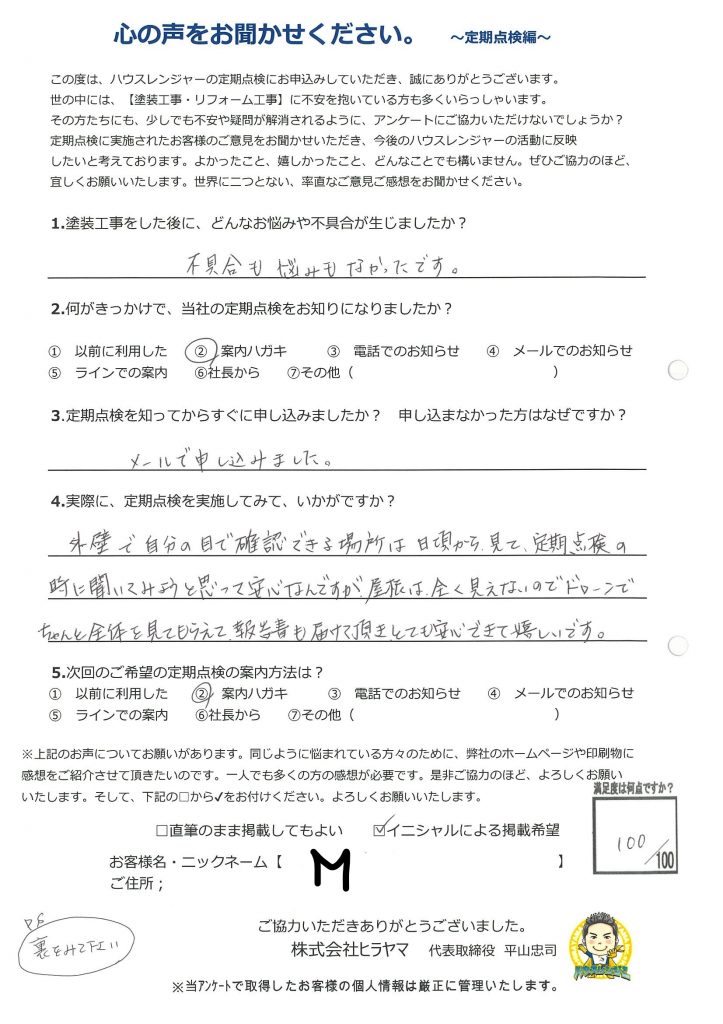 心の声をお聞かせください。 ～定期点検編～
この度は、ハウスレンジャーの定期点検にお申込みしていただき、誠にありがとうございます。
世の中には、【塗装工事・リフォーム工事】に不安を抱いている方も多くいらっしゃいます。
その方たちにも、少しでも不安や疑問が解消されるように、アンケートにご協力いただけないでしょうか？
定期点検に実施されたお客様のご意見をお聞かせいただき、今後のハウスレンジャーの活動に反映
したいと考えております。よかったこと、嬉しかったこと、どんなことでも構いません。ぜひご協力のほど、
宜しくお願いいたします。世界に二つとない、率直なご意見ご感想をお聞かせください。
1.塗装工事をした後に、どんなお悩みや不具合が生じましたか？
不具合も悩みもなかったです。
2.何がきっかけで、当社の定期点検をお知りになりましたか？
① 以前に利用した ② 案内ハガキ ③ 電話でのお知らせ ④ メールでのお知らせ
⑤ ラインでの案内 ⑥社長から ⑦その他（ ）
3.定期点検を知ってからすぐに申し込みましたか？ 申し込まなかった方はなぜですか？
メールで申し込みました。
4.実際に、定期点検を実施してみて、いかがですか？
外壁で自分の目で確認できる場所は日頃から、見て、定期点検の
時に聞いてみようと思って安心なんですが、屋根は、全く見えないのでドローンで
ちゃんと全体を見てもらえて、報告書も届けて頂き、とても安心できて嬉しいです。
5.次回のご希望の定期点検の案内方法は？
① 以前に利用した ② 案内ハガキ ③ 電話でのお知らせ ④ メールでのお知らせ
⑤ ラインでの案内 ⑥社長から ⑦その他（ ）
※上記のお声についてお願いがあります。同じように悩まれている方々のために、弊社のホームページや印刷物に
感想をご紹介させて頂きたいのです。一人でも多くの方の感想が必要です。是非ご協力のほど、よろしくお願い
いたします。そして、下記の□から✓をお付けください。よろしくお願いいたします。
満足度は何点ですか？
□直筆のまま掲載してもよい ☑イニシャルによる掲載希望
100/100
お客様名・ニックネーム【 M 】
ご住所；
PS
裏をみて下さい
ご協力いただきありがとうございました。
株式会社ヒラヤマ 代表取締役 平山忠司
※当ｱﾝｹｰﾄで取得したお客様の個人情報は厳正に管理いたします。